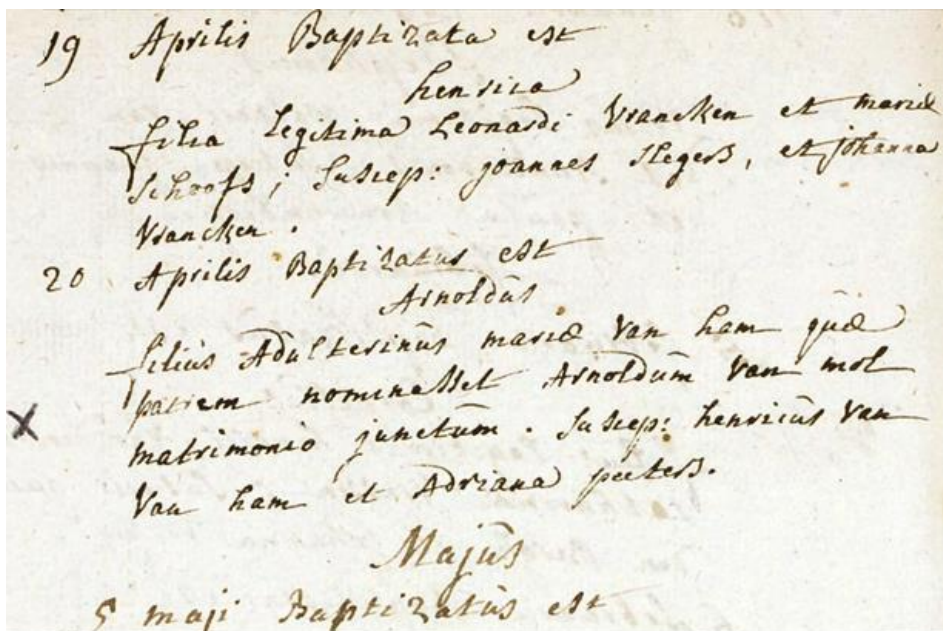 19 Aprilis Baptizata est
henrica
filia Legitima Leonardi Vrancken et mariæ
Schoofs; Suscep: joannes Slegers, et johanna
Vrancken.
20 Aprilis Baptizatus est
Arnoldus
filius Adulterinus mariæ Van ham quæ
patrem nominasset Arnoldum Van mol
X matrimonio junctum. Suscep: henricus Van
Van ham et Adriana peeters.
Majus
5 maji Baptizatus est